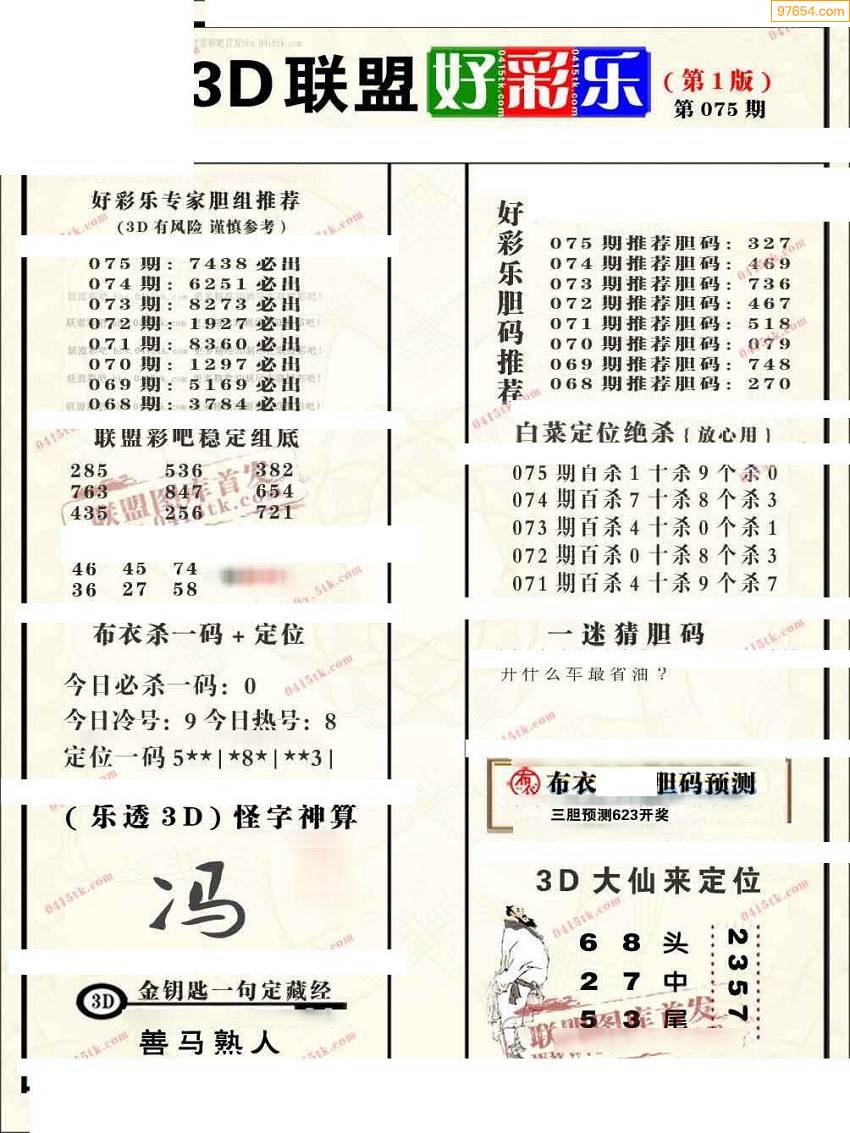 97654.com
3D联盟好彩乐
(第1版)
第075期
好彩乐专家胆组推荐
(3D有风险 谨慎参考)
075期:7438必出
074期:6251必出
073期:8273必出
072期:1927必出
071期:8360必出
070期:1297必出
069期:5169必出
068期:3784必出
联盟彩吧稳定组底
285 536 382
763 847 654
435 256 721
46 45 74
36 27 58
布衣杀一码+定位
今日必杀一码:0
今日冷号:9 今日热号:8
定位一码5**|*8*|**3|
(乐透3D)怪字神算
冯
3D 金钥匙一句定藏经
善马熟人
好彩乐胆码推荐
075期推荐胆码:327
074期推荐胆码:469
073期推荐胆码:736
072期推荐胆码:467
071期推荐胆码:518
070期推荐胆码:079
069期推荐胆码:748
068期推荐胆码:270
白菜定位绝杀{放心用}
075期百杀1十杀9个杀0
074期百杀7十杀8个杀3
073期百杀4十杀0个杀1
072期百杀0十杀8个杀3
071期百杀4十杀9个杀7
一迷猜胆码
开什么车最省油?
布衣 胆码预测
三胆预测623开奖
3D大仙来定位
6 8 头
2 7 中
5 3 尾
2357
联盟图库首发
0415tk.com